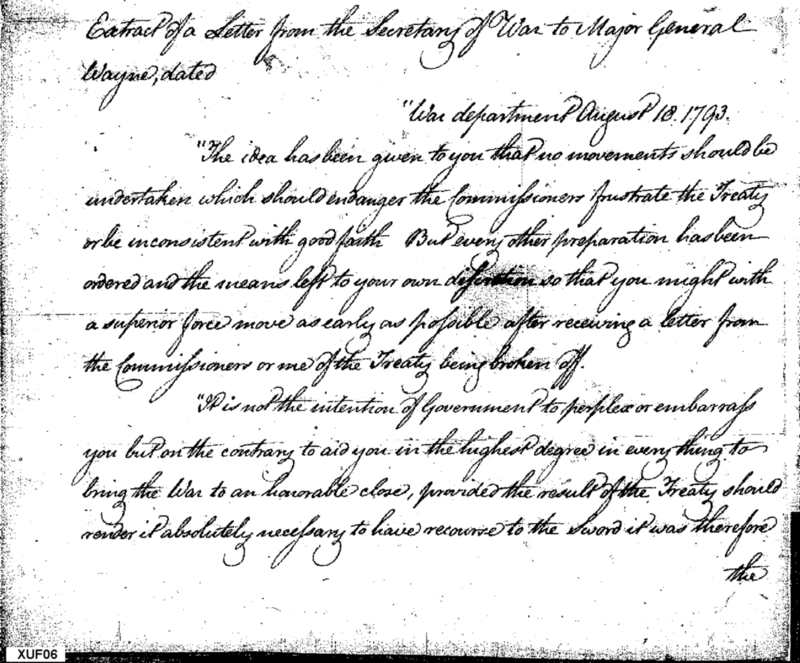 Extract of a Letter from the Secretary of War to Major General
Wayne, dated
"War department August 18. 1793.
"The idea has been given to you that no movements should be
undertaken which should endanger the Commissioners frustrate the Treaty
or be inconsistent with good faith But every other preparation has been
ordered and the means left to your own discretion so that you might with
a superior force move as early as possible after receiving a letter from
the Commissioners or me of the Treaty being broken off.
"It is not the intention of Government to perplex or embarrass
you but on the contrary to aid you in the highest degree in every thing to
bring the War to an honorable close, provided the result of the Treaty should
render it absolutely necessary to have recourse to the Sword it was therefore
the
XUF06